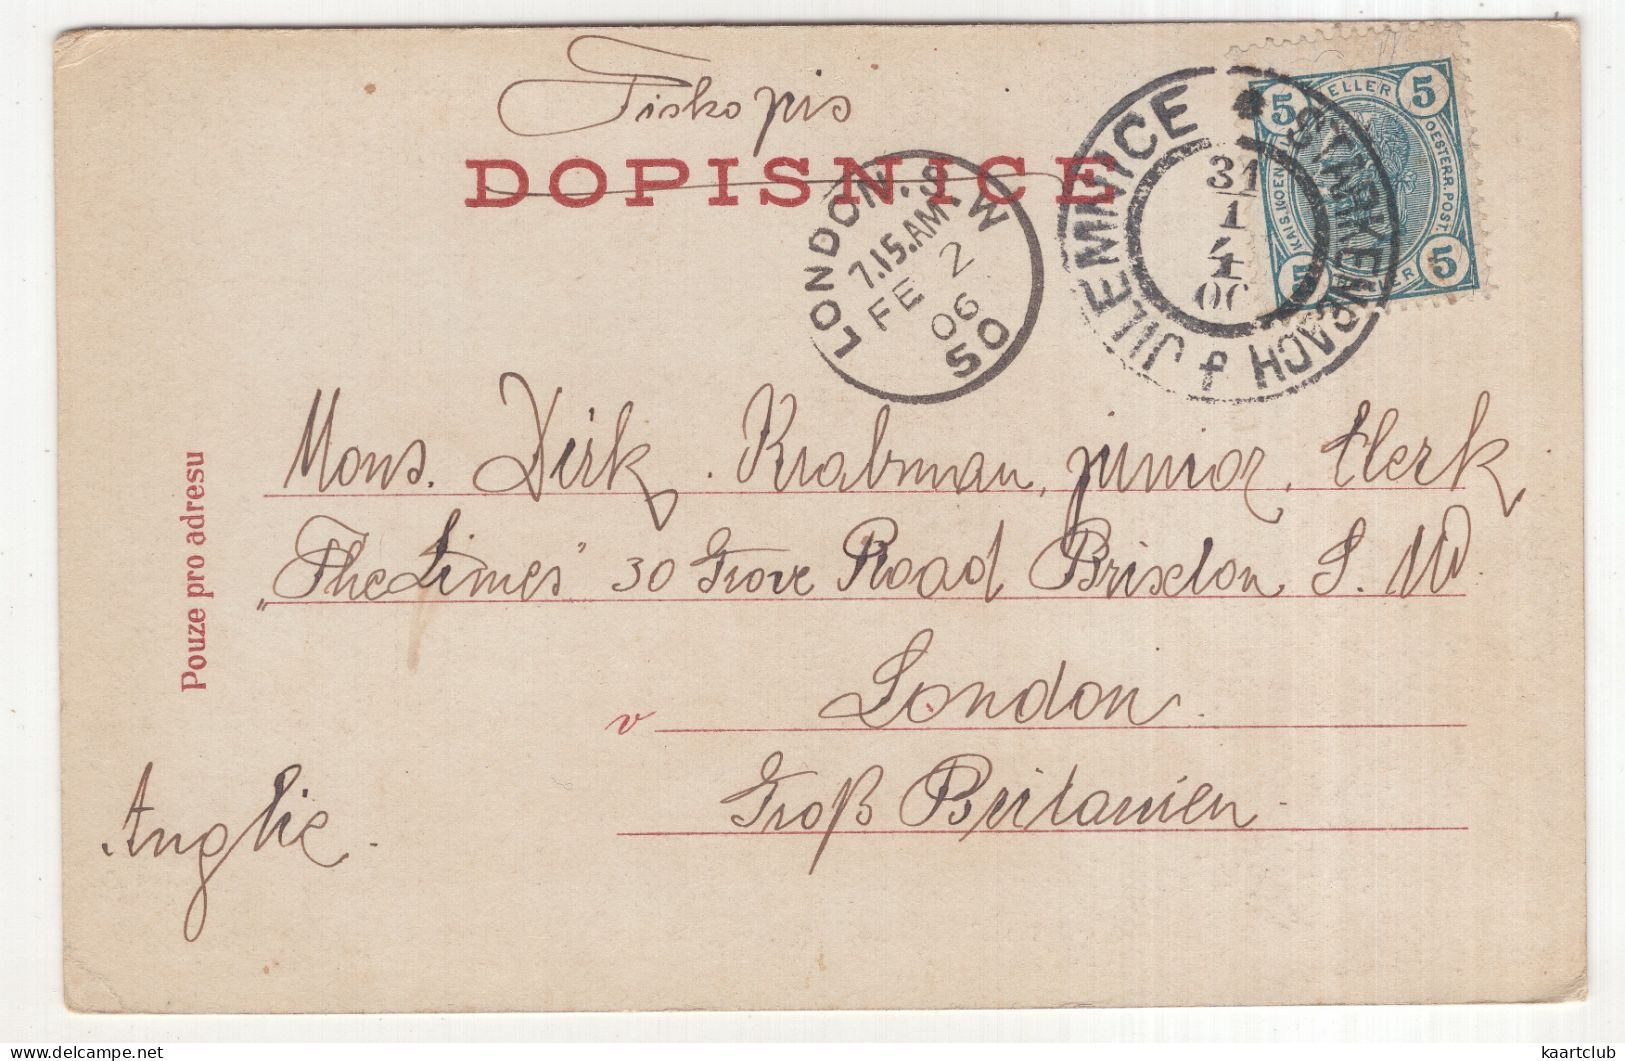 Tiskopis
DOPISNICE
LONDON. S.W
7.15.AM
FE 2
06
50
JILEMNICE
STARKENBACH
31
1
5 5
KAIS. KOEN
OESTERR. POST.
5 5
Pouze pro adresu
Mons. Dirk. Krabman, junior. Clerk
„The Limes" 30 Grove Road Brixton S. W.
v London
Groß Britanien
Anglie.
kaartclub